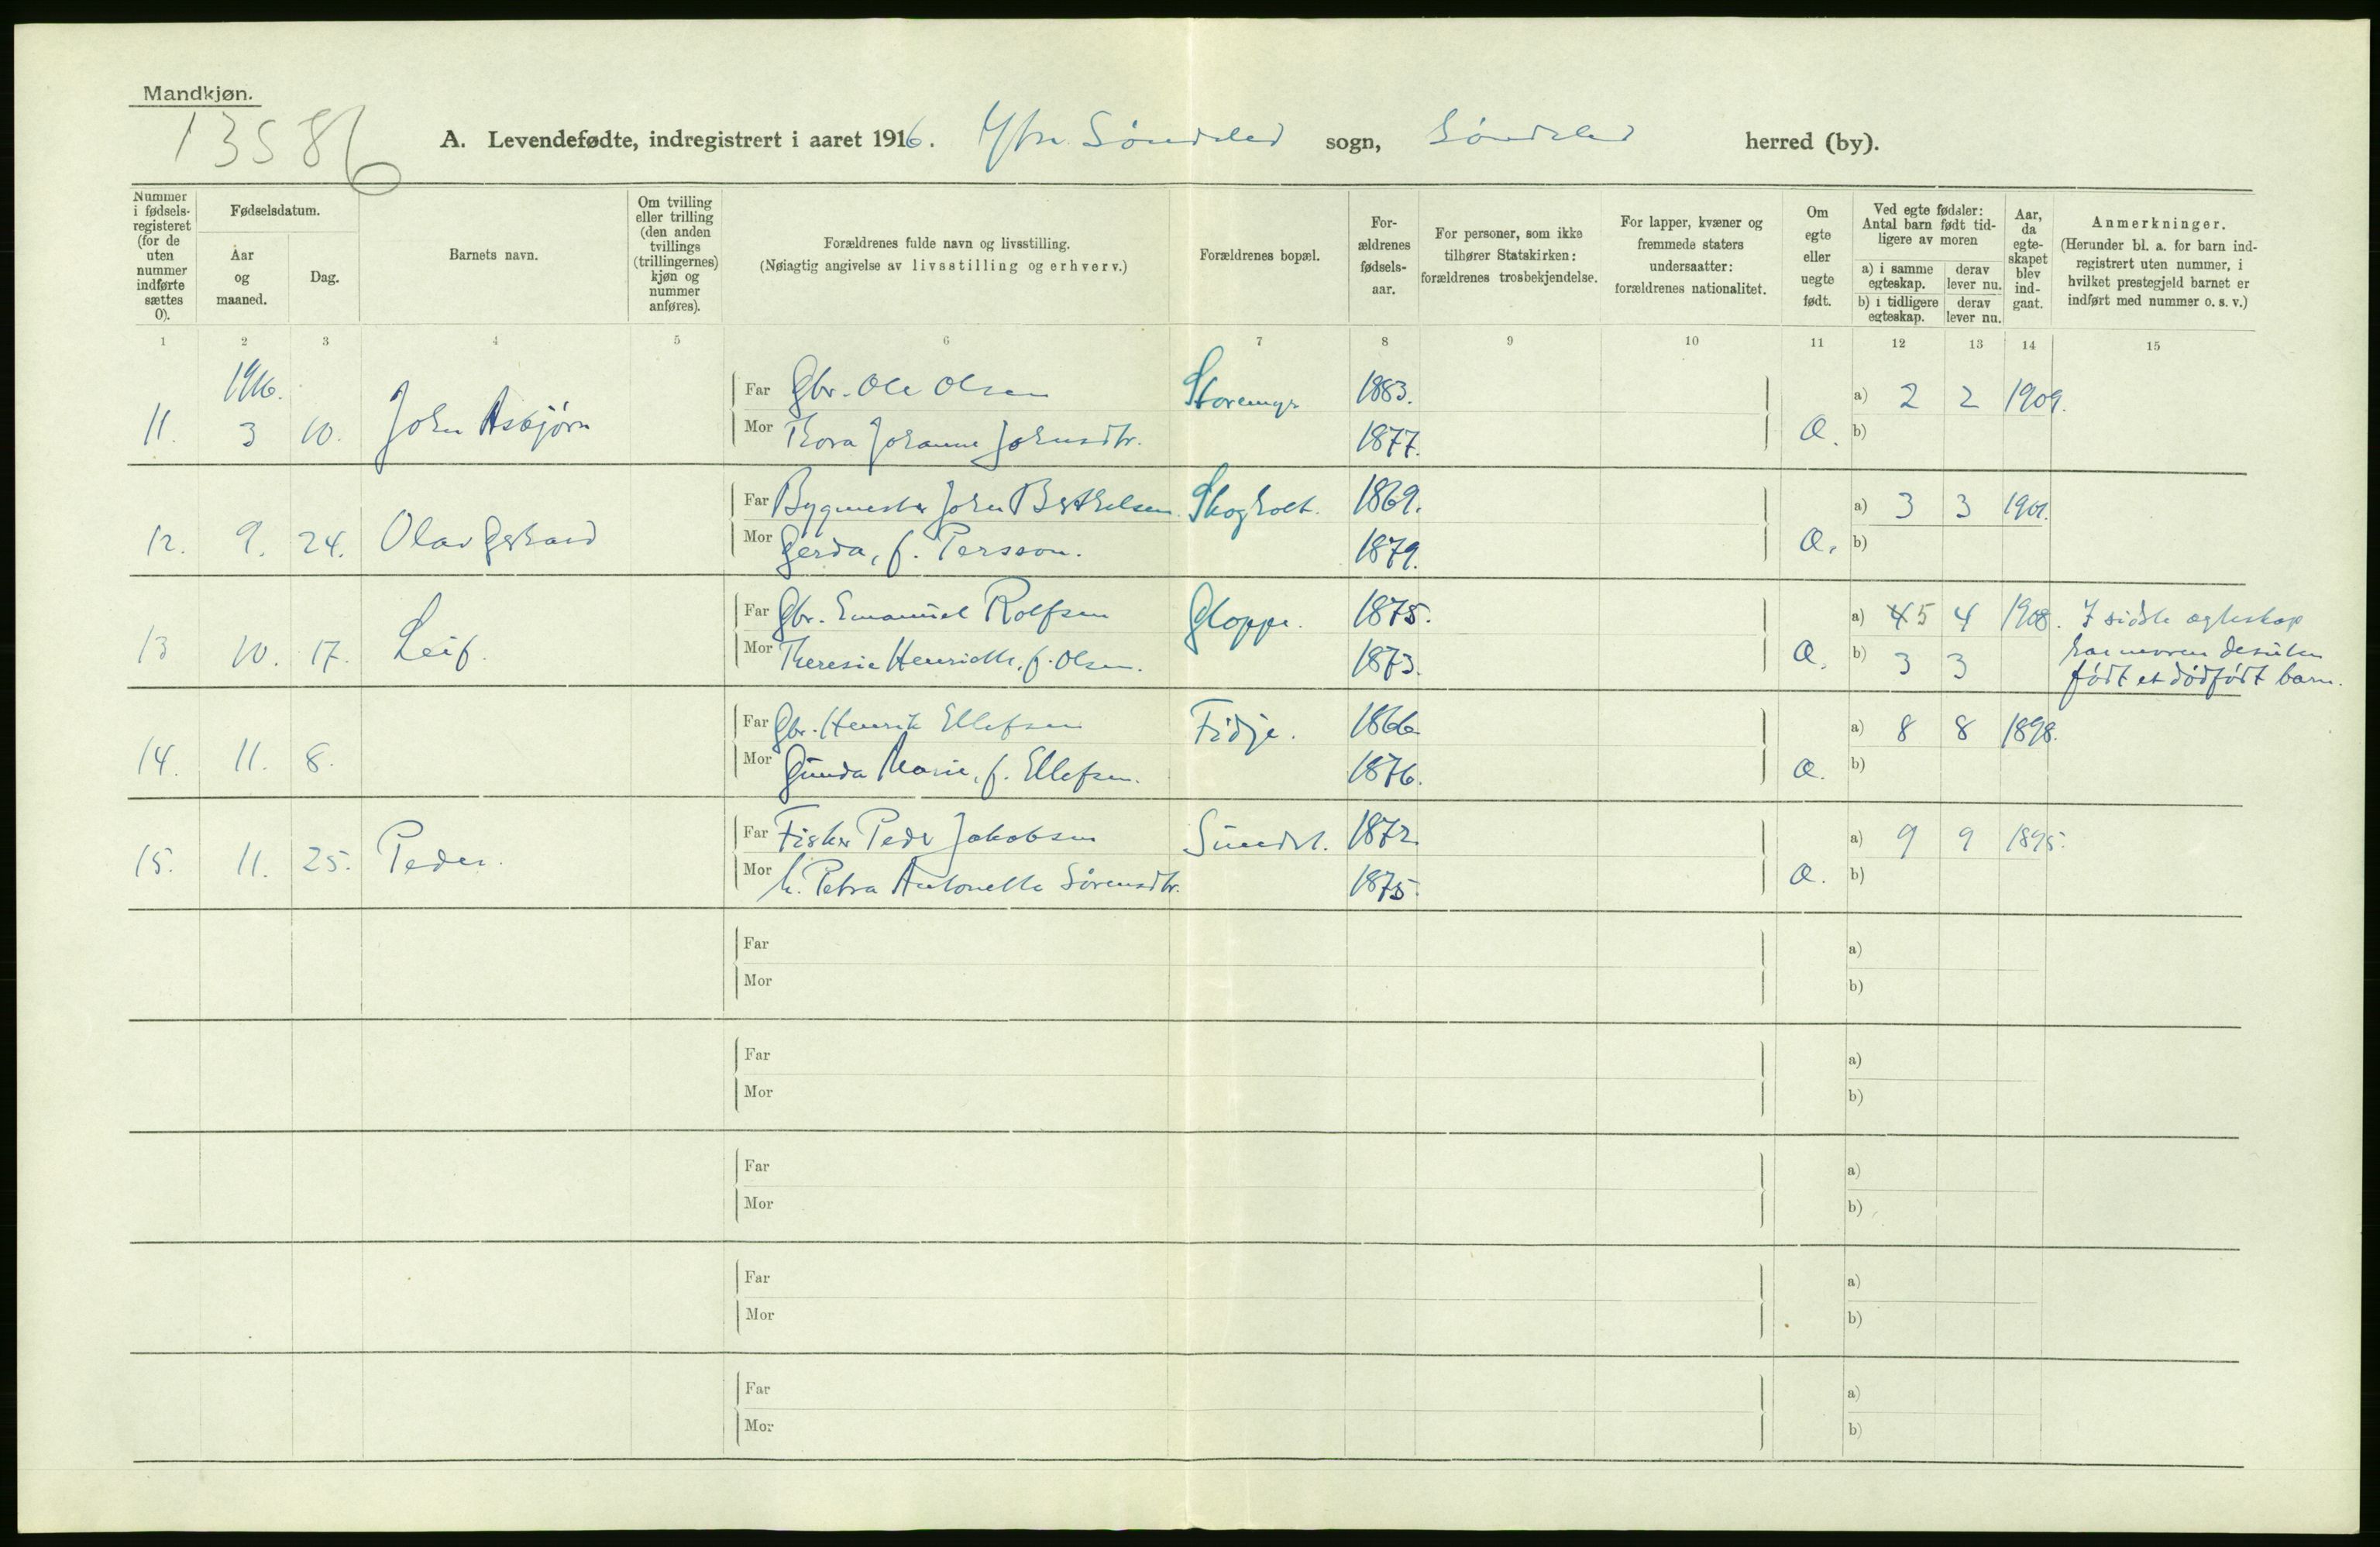 Mandkjøn.
13586
A. Levendefødte, indregistrert i aaret 1916. Ytre Søndeled sogn, Søndeled herred (by).
Nummer i fødsels-registeret (for de uten nummer indførte sættes 0).
Fødselsdatum.
Aar og maaned.
Dag.
Barnets navn.
Om tvilling eller trilling (den anden tvillings (trillingernes) kjøn og nummer anføres).
Forældrenes fulde navn og livsstilling.
(Nøiagtig angivelse av livsstilling og erhverv.)
Forældrenes bopæl.
For-ældrenes fødsels-aar.
For personer, som ikke tilhører Statskirken: forældrenes trosbekjendelse.
For lapper, kvæner og fremmede staters undersaatter: forældrenes nationalitet.
Om egte eller uegte født.
Ved egte fødsler: Antal barn født tid-ligere av moren
a) i samme egteskap. derav lever nu.
b) i tidligere egteskap. derav lever nu.
Aar, da egte-skapet blev ind-gaat.
Anmerkninger.
(Herunder bl. a. for barn ind-registrert uten nummer, i hvilket prestegjeld barnet er indført med nummer o. s. v.)
1 2 3 4 5 6 7 8 9 10 11 12 13 14 15
1916.
Far Gbr. Ole Olsen Storemyr 1883. a) 2 2 1909.
11. 3 10. John Asbjørn Mor Thora Johanne Johnsdtr. 1877. Æ. b)
Far Bygmester John Berthelsen Skogholt. 1869. a) 3 3 1901.
12. 9. 24. Olav Gerhard Mor Gerda, f. Persson. 1879. Æ. b)
Far Gbr. Emanuel Rolfsen Gloppe. 1875. a) 4 5 4 1908. I sidste egteskap
13 10. 17. Leif. Mor Theresie Henriette, f. Olsen. 1873. Æ. b) 3 3 har moren desuten
født et dødfødt barn.
Far Gbr. Henrik Ellefsen Fidje. 1866 a) 8 8 1898.
14. 11. 8. Mor Gunda Marie, f. Ellefsen. 1876. Æ. b)
Far Fisker Peder Jakobsen Sundst. 1872. a) 9 9 1895.
15. 11. 25. Peder. Mor h. Petra Antonette Sørensdtr. 1875. Æ. b)
Far a)
Mor b)
Far a)
Mor b)
Far a)
Mor b)
Far a)
Mor b)
Far a)
Mor b)